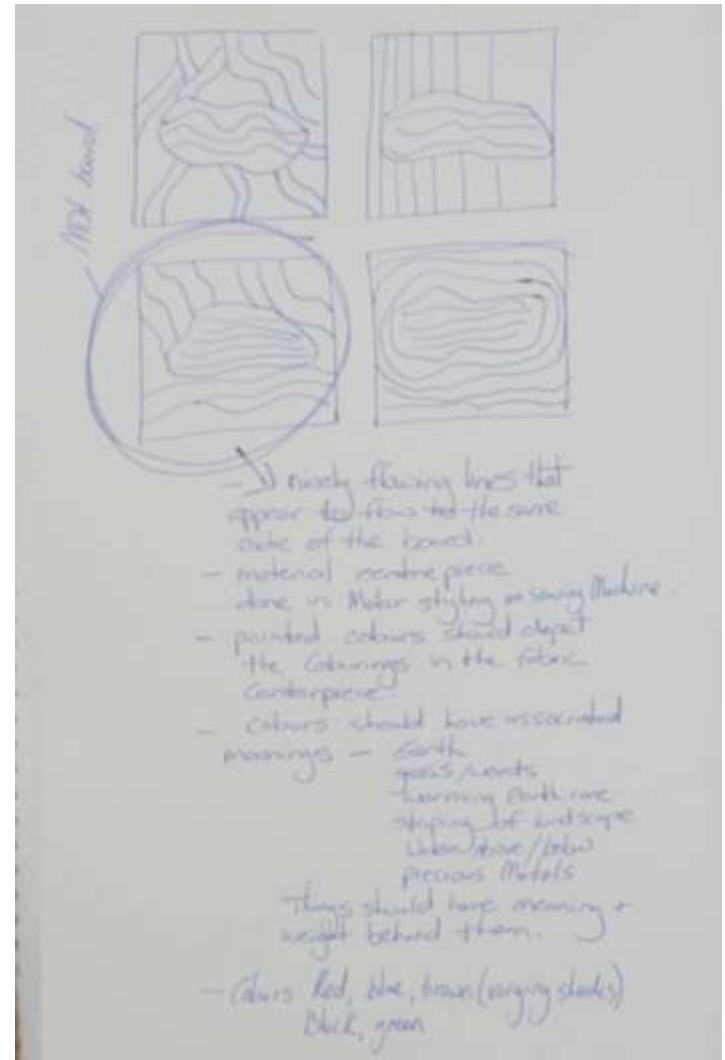 MDF board
- nicely flowing lines that
appear to flow to the same
side of the board.
- material centre piece
done in Maker styling on Sewing Machine.
- painted colours should depict
the Colourings in the fabric
Centerpiece.
- colours should have associated
meanings - Earth
grass/weeds
Warming Earth core
shaping of landscape
above/below
precious Metals
Things should have meaning +
weight behind them.
- Colours Red, blue, brown (varying shades)
Black, green